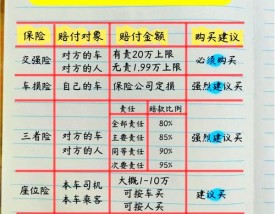 保险 赔付对象 赔付金额 购买建议
交强险 对方的车 对方的人 有责20万上限 无责1.99万上限 必须购买
车损险 自己的车 保险公司定损 强烈建议买
三者险 对方的车 对方的人 强烈建议买
责任 赔款比例
全部责任 80%
主要责任 85%
同等责任 90%
次要责任 95%
座位险 本车司机 本车乘客 大概1-10万 可按车买 可按人买 建议买